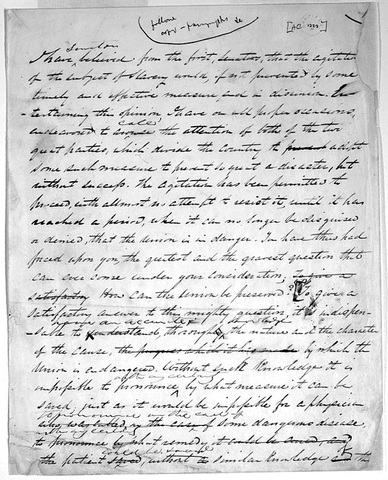 follows
Senators
I have, believed from the first, Senators, that the agitation
of the subject of slavery would, if not prevented by some
timely and effective measure end in disunion. En-
-tertaining this opinion, I have on all proper occasions,
call
endeavored to arouse the attention of both of the two
great parties, which divide the country to adopt
some such measure to prevent so great a disaster, but
without success. The agitation has been permitted to
proceed, with allmost no attempt to resist it, until it has
reached a period, when it can no longer be disguised
or denied, that the Union is in danger. You have thus had
forced upon you, the greatest and the gravest question that
can ever come under your consideration, to give a
satisfactory How can the Union be preserved? To give a
satisfactory answer to this mighty question, it is indispen-
-sable to understand, through, the nature and the character
of the cause, the progress which it has made by which the
Union is endangered. Without such knowledge it is
impossible to pronounce by what measure it can be
saved, just as it would be impossible for a physician
to pronounce in the case of some dangerous disease,
to pronounce by what remedy it could be cured, and
could be saved
the patient saved, without similar knowledge